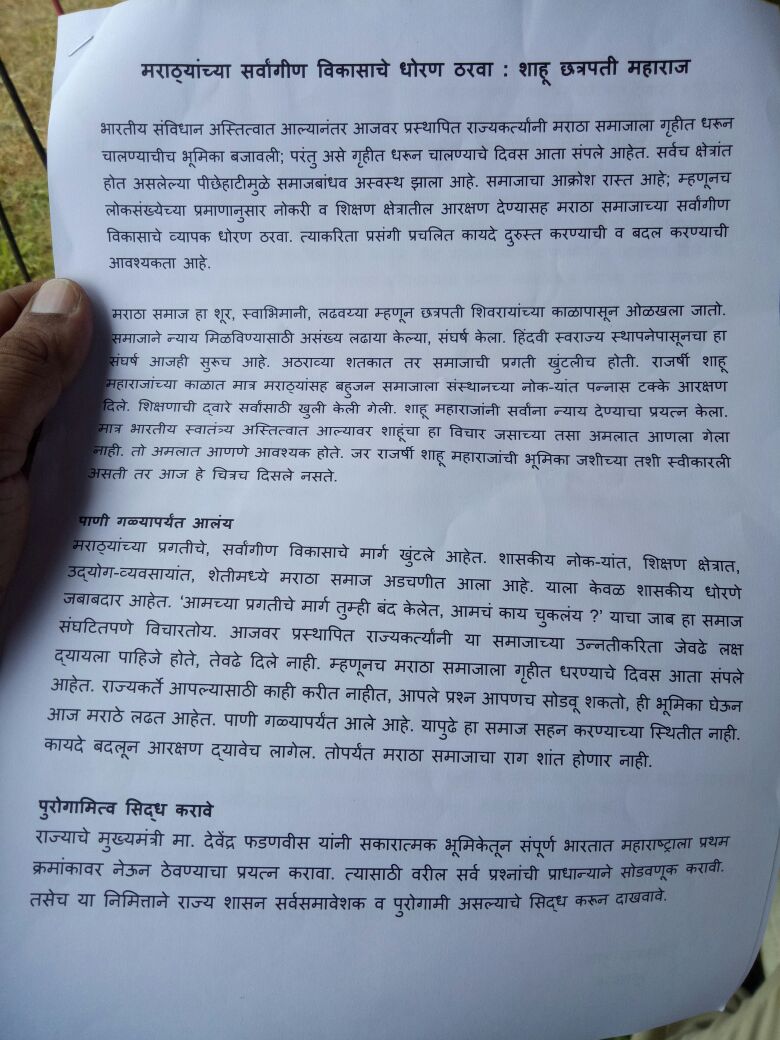 मराठ्यांच्या सर्वांगीण विकासाचे धोरण ठरवा : शाहू छत्रपती महाराज
भारतीय संविधान अस्तित्वात आल्यानंतर आजवर प्रस्थापित राज्यकर्त्यांनी मराठा समाजाला गृहीत धरून
चालण्याचीच भूमिका बजावली; परंतु असे गृहीत धरून चालण्याचे दिवस आता संपले आहेत. सर्वच क्षेत्रांत
होत असलेल्या पीछेहाटीमुळे समाजबांधव अस्वस्थ झाला आहे. समाजाचा आक्रोश रास्त आहे; म्हणूनच
लोकसंख्येच्या प्रमाणानुसार नोकरी व शिक्षण क्षेत्रातील आरक्षण देण्यासह मराठा समाजाच्या सर्वांगीण
विकासाचे व्यापक धोरण ठरवा. त्याकरिता प्रसंगी प्रचलित कायदे दुरुस्त करण्याची व बदल करण्याची
आवश्यकता आहे.
मराठा समाज हा शूर, स्वाभिमानी, लढवय्या म्हणून छत्रपती शिवरायांच्या काळापासून ओळखला जातो.
समाजाने न्याय मिळविण्यासाठी असंख्य लढाया केल्या, संघर्ष केला. हिंदवी स्वराज्य स्थापनेपासूनचा हा
संघर्ष आजही सुरूच आहे. अठराव्या शतकात तर समाजाची प्रगती खुंटलीच होती. राजर्षी शाहू
महाराजांच्या काळात मात्र मराठ्यांसह बहुजन समाजाला संस्थानच्या नोक-यांत पन्नास टक्के आरक्षण
दिले. शिक्षणाची द्वारे सर्वांसाठी खुली केली गेली. शाहू महाराजांनी सर्वांना न्याय देण्याचा प्रयत्न केला.
मात्र भारतीय स्वातंत्र्य अस्तित्वात आल्यावर शाहूंचा हा विचार जसाच्या तसा अमलात आणला गेला
नाही. तो अमलात आणणे आवश्यक होते. जर राजर्षी शाहू महाराजांची भूमिका जशीच्या तशी स्वीकारली
असती तर आज हे चित्रच दिसले नसते.
पाणी गळ्यापर्यंत आलंय
मराठ्यांच्या प्रगतीचे, सर्वांगीण विकासाचे मार्ग खुंटले आहेत. शासकीय नोक-यांत, शिक्षण क्षेत्रात,
उद्योग-व्यवसायांत, शेतीमध्ये मराठा समाज अडचणीत आला आहे. याला केवळ शासकीय धोरणे
जबाबदार आहेत. 'आमच्या प्रगतीचे मार्ग तुम्ही बंद केलेत, आमचं काय चुकलंय ?' याचा जाब हा समाज
संघटितपणे विचारतोय. आजवर प्रस्थापित राज्यकर्त्यांनी या समाजाच्या उन्नतीकरिता जेवढे लक्ष
द्यायला पाहिजे होते, तेवढे दिले नाही. म्हणूनच मराठा समाजाला गृहीत धरण्याचे दिवस आता संपले
आहेत. राज्यकर्ते आपल्यासाठी काही करीत नाहीत, आपले प्रश्न आपणच सोडवू शकतो, ही भूमिका घेऊन
आज मराठे लढत आहेत. पाणी गळ्यापर्यंत आले आहे. यापुढे हा समाज सहन करण्याच्या स्थितीत नाही.
कायदे बदलून आरक्षण द्यावेच लागेल. तोपर्यंत मराठा समाजाचा राग शांत होणार नाही.
पुरोगामित्व सिद्ध करावे
राज्याचे मुख्यमंत्री मा. देवेंद्र फडणवीस यांनी सकारात्मक भूमिकेतून संपूर्ण भारतात महाराष्ट्राला प्रथम
क्रमांकावर नेऊन ठेवण्याचा प्रयत्न करावा. त्यासाठी वरील सर्व प्रश्नांची प्राधान्याने सोडवणूक करावी.
तसेच या निमित्ताने राज्य शासन सर्वसमावेशक व पुरोगामी असल्याचे सिद्ध करून दाखवावे.